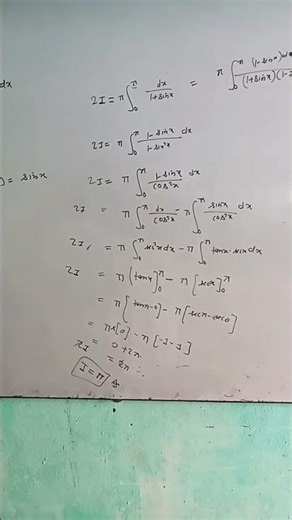 dx
2I = π ∫₀^π dx/(1+sinx) = π ∫₀^π (1-sinx)dx/(1+sinx)(1-s
2I = π ∫₀^π (1-sinx)/(1-sin²x) dx
) = sinx
2I = π ∫₀^π (1-sinx)/(cos²x) dx
2I = π ∫₀^π dx/cos²x - π ∫₀^π sinx/cos²x dx
2I = π ∫₀^π sec²x dx - π ∫₀^π tanx·secx dx
2I = π [tanx]₀^π - π [secx]₀^π
= π [tanπ-0] - π [secπ-sec0]
= π[0] - π[-1-1]
2I = 0+2π
= 2π
I = π